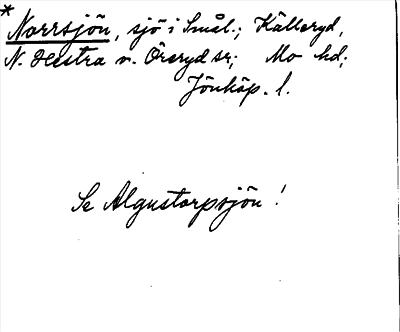 * Norrsjön, sjö i Smål.; Källeryd,
N. Hestra o. Öreryd sr; Mo hd;
Jönköp. l.
Se Algustorpsjön!